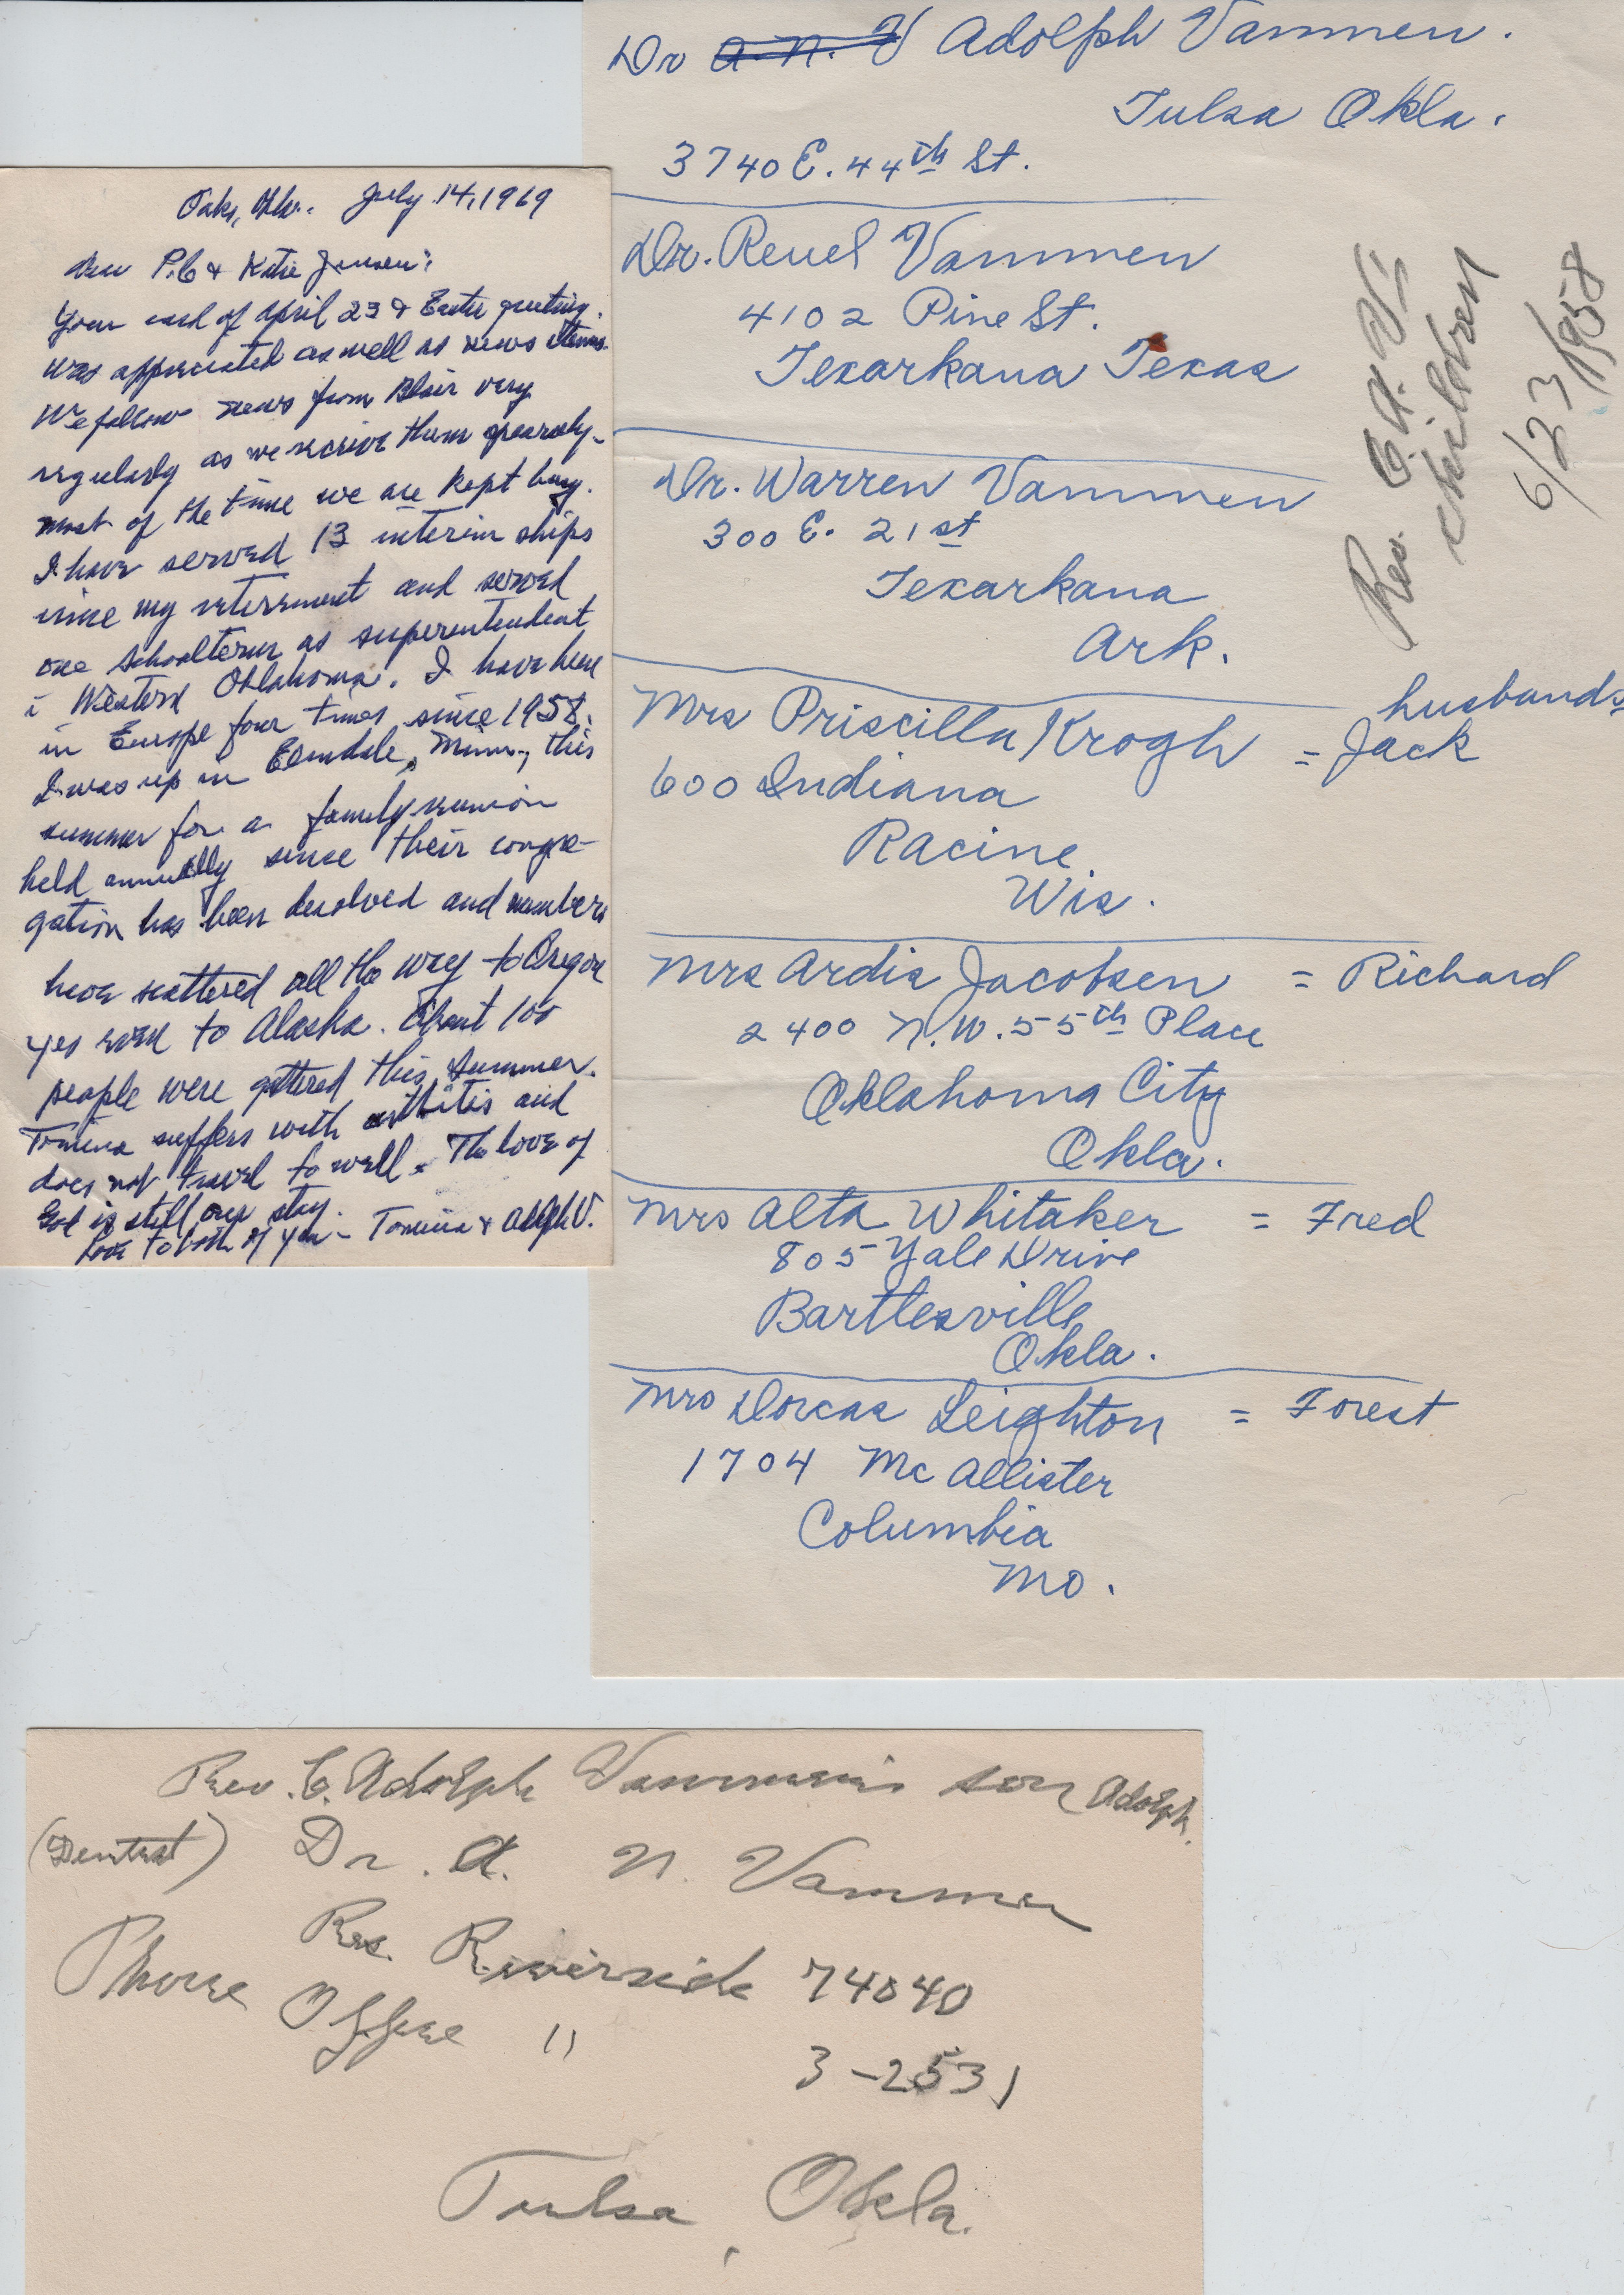 Oaks, Okla. July 14, 1969
Dear P.C & Katie Jensen:
Your card of April 23 & Easter greeting.
was appreciated as well as news items.
We follow news from Blair very
regularly as we receive them
most of the time we are kept busy.
I have served 13 interim ships
since my retirement and served
one schoolterm as superentendent
i Western Oklahoma. I have been
in Europe four times since 1958.
I was up in Elmdale, Minn., this
summer for a family reunion
held annually since their congre-
gation has been desolved and members
have scattered all the way to Oregon
yes even to Alaska. About 100
people were gattered this summer.
Tomina suffers with arthitis and
does not travel to well. The love of
God is still our stay.
Love to both of you - Tomina & Adolph V.
Dr A. N. V Adolph Vammen.
Tulsa Okla.
3740 E. 44th St.
Dr. Reuel Vammen
4102 Pine St.
Texarkana Texas
Dr. Warren Vammen
300 E. 21st
Texarkana
Ark.
husbands
Mrs Priscilla Krogh = Jack
600 Indiana
Racine
Wis.
Mrs Ardis Jacobsen = Richard
2400 N.W. 55th Place
Oklahoma City
Okla.
Mrs Alta Whitaker = Fred
805 Yale Drive
Bartlesville
Okla.
Mrs Dorcas Leighton = Forest
1704 McAllister
Columbia
Mo.
Rev. C. A. V's
children
6/23/1958
Rev. C. Adolph Vammen's son Adolph.
(Dentist) Dr. A. N. Vammen
Res. Riverside 74040
Phone Office " 3-2531
Tulsa, Okla.